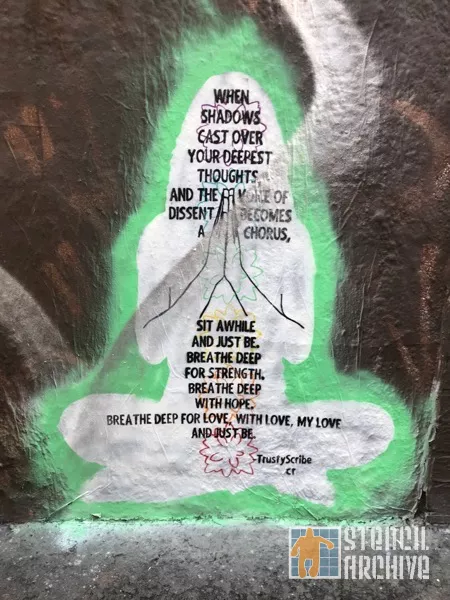 WHEN
SHADOWS
CAST OVER
YOUR DEEPEST
THOUGHTS
AND THE VOICE OF
DISSENT BECOMES
A CHORUS,
SIT AWHILE
AND JUST BE.
BREATHE DEEP
FOR STRENGTH.
BREATHE DEEP
WITH HOPE.
BREATHE DEEP FOR LOVE, WITH LOVE, MY LOVE
AND JUST BE.
-TrustyScribe
cr
STENCIL
ARCHIVE